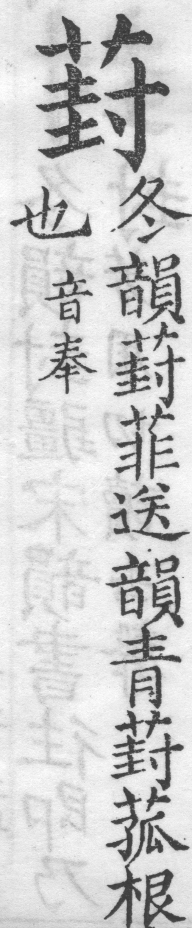 葑
冬韻葑菲送韻青葑菰根
也
音奉